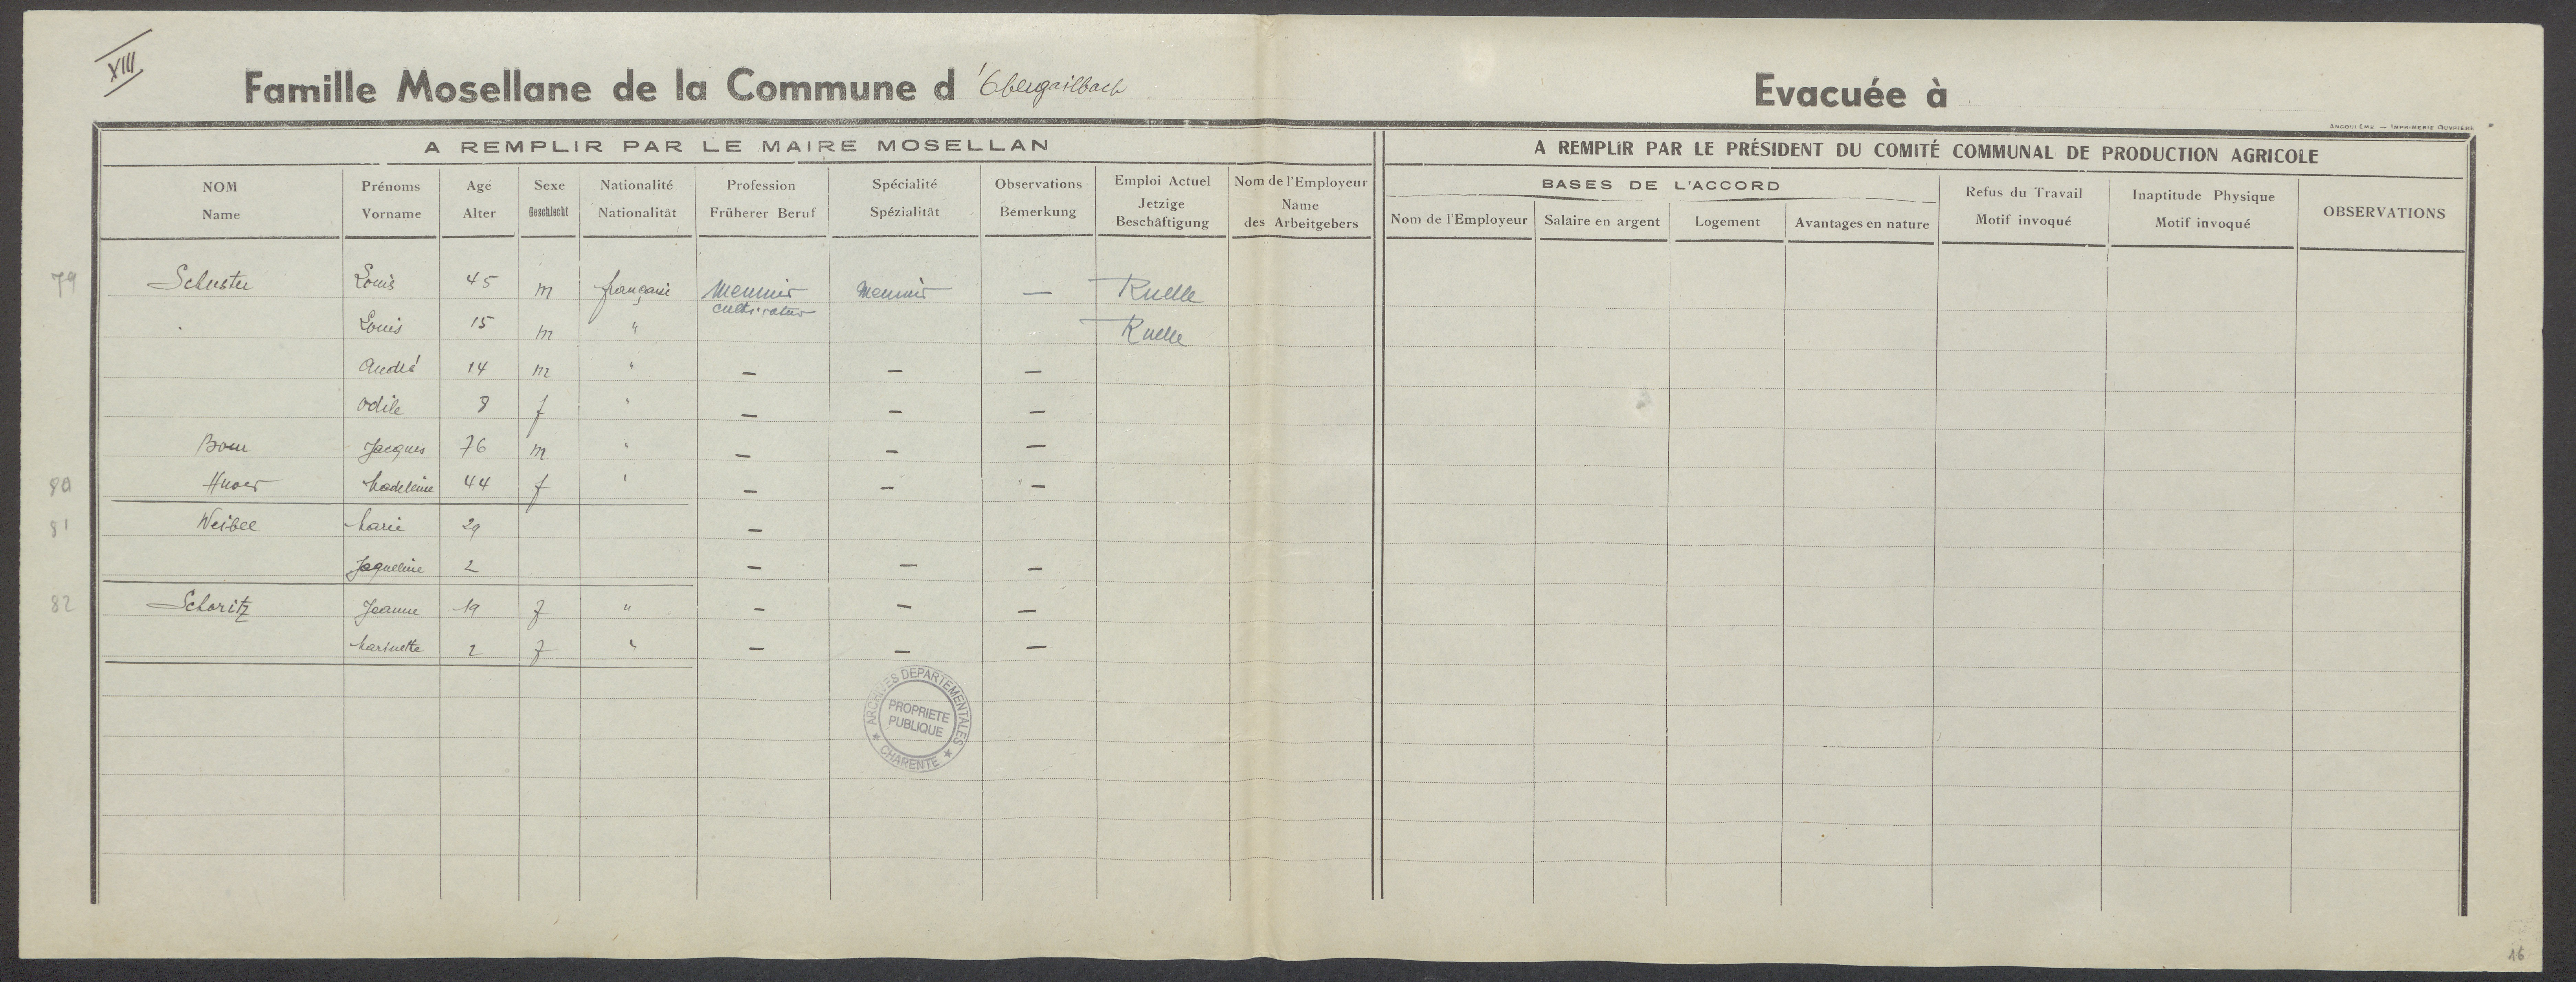 XIII
Famille Mosellane de la Commune d'Obergailbach Evacuée à
ANGOULÊME — IMPRIMERIE OUVRIÈRE
A REMPLIR PAR LE MAIRE MOSELLAN
A REMPLIR PAR LE PRÉSIDENT DU COMITÉ COMMUNAL DE PRODUCTION AGRICOLE
NOM Name
Prénoms Vorname
Age Alter
Sexe Geschlecht
Nationalité Nationalität
Profession Früherer Beruf
Spécialité Spézialität
Observations Bemerkung
Emploi Actuel Jetzige Beschäftigung
Nom de l'Employeur Name des Arbeitgebers
BASES DE L'ACCORD
Nom de l'Employeur
Salaire en argent
Logement
Avantages en nature
Refus du Travail Motif invoqué
Inaptitude Physique Motif invoqué
OBSERVATIONS
79 Schuster Louis 45 m française Meunier Meunier — Ruelle
cultivateur
Louis 15 m " Ruelle
André 14 m " — — —
Odile 8 f " — — —
Bour Jacques 76 m " — — —
80 Madeleine 44 f " — — —
81 Weibel Marie 29 —
Jaqueline 2 — — —
82 Schoritz Jeanne 19 f " — — —
Marinette 2 f " — — —
ARCHIVES DEPARTEMENTALES
PROPRIETE
PUBLIQUE
CHARENTE
16